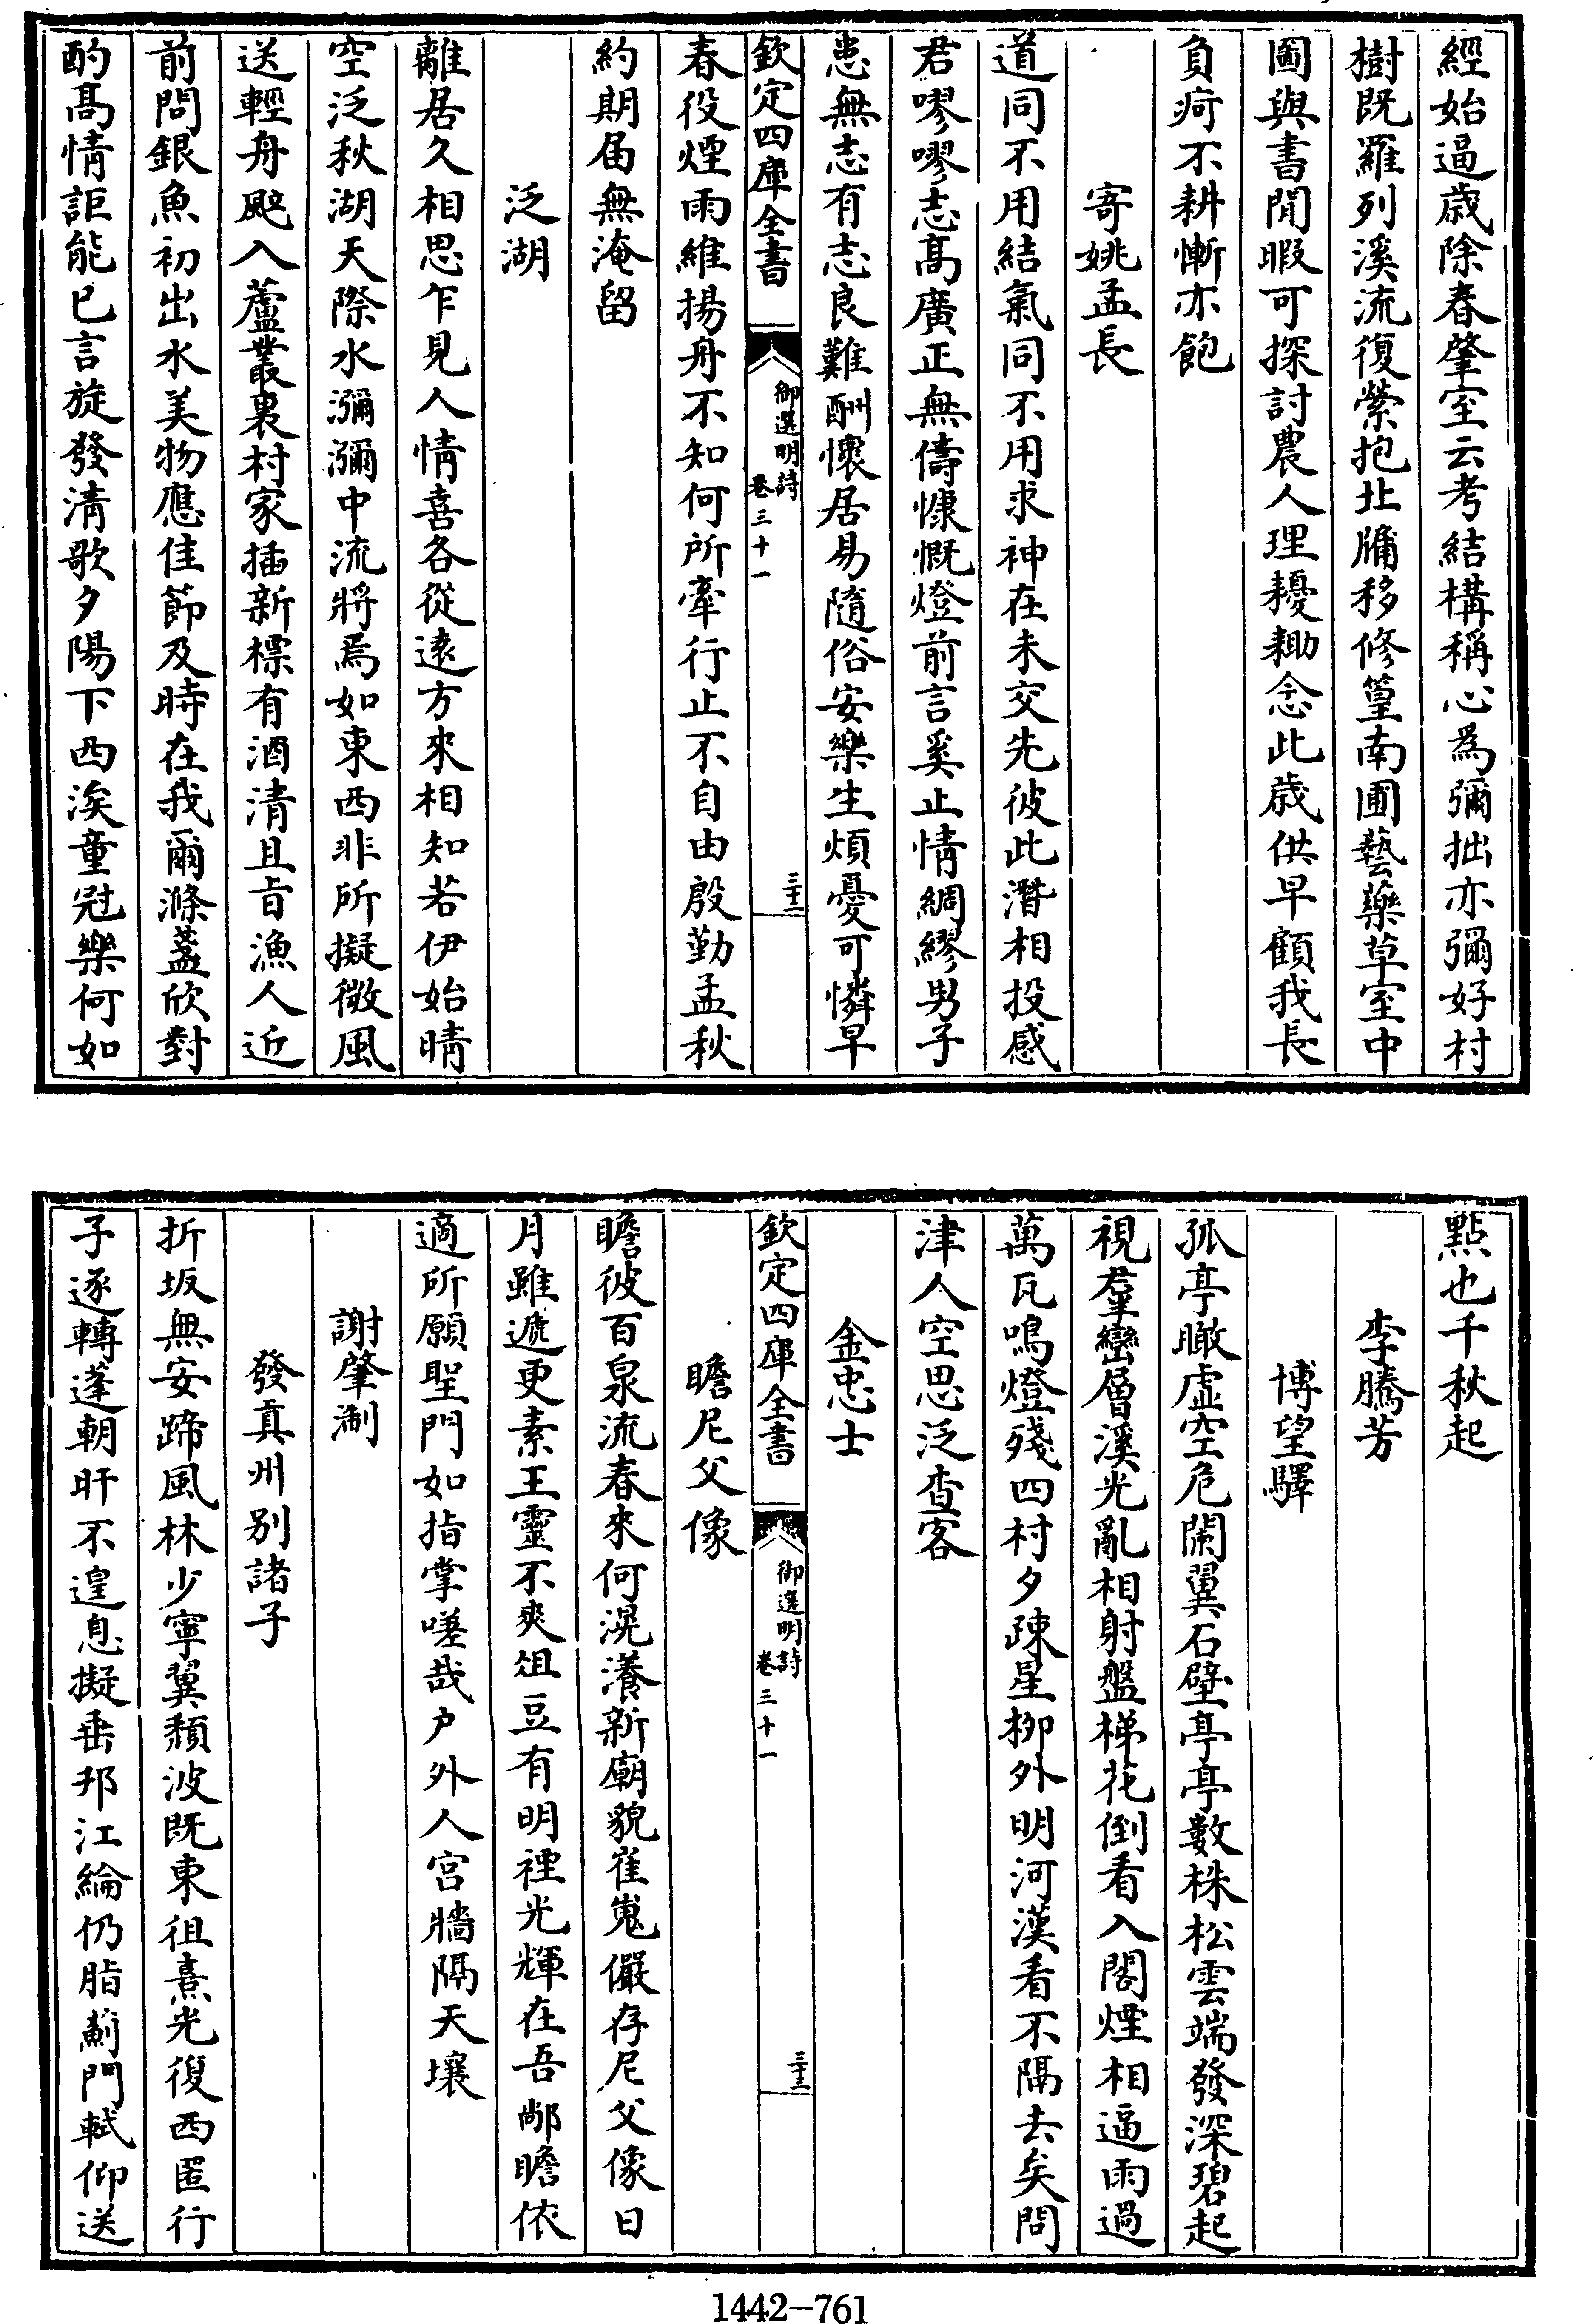 經始逼歲除春肇室云考結構稱心為彌拙亦彌好村
樹既羅列溪流復縈抱北牖移修篁南圃藝藥草室中
圖與書閒暇可探討農人理耰耡念此歲供早顧我長
負疴不耕慚亦飽
寄姚孟長
道同不用結氣同不用求神在未交先彼此潛相投感
君嘐嘐志高廣正無儔慷慨燈前言奚止情綢繆男子
患無志有志良難酬懷居易隨俗安樂生煩憂可憐早
欽定四庫全書
御選明詩
卷三十一
三十二
春役煙雨維揚舟不知何所牽行止不自由殷勤孟秋
約期届無淹留
泛湖
離居久相思乍見人情喜各從遠方來相知若伊始晴
空泛秋湖天際水瀰瀰中流將焉如東西非所擬微風
送輕舟颭入蘆叢裏村家插新標有酒清且旨漁人近
前問銀魚初出水美物應佳節及時在我爾滌盞欣對
酌高情詎能已言旋發清歌夕陽下西涘童冠樂何如
點也千秋起
李騰芳
博望驛
孤亭瞰虛空危閣翼石壁亭亭數株松雲端發深碧起
視羣巒層溪光亂相射盤梯花倒看入閣煙相逼雨過
萬瓦鳴燈殘四村夕疎星栁外明河漢看不隔去矣問
津人空思泛查客
金忠士
欽定四庫全書
御選明詩
卷三十一
三十三
瞻尼父像
瞻彼百泉流春來何滉瀁新廟貌崔嵬儼存尼父像日
月雖遞更素王靈不爽俎豆有明禋光輝在吾鄌瞻依
適所願聖門如指掌嗟哉户外人宫牆隔天壤
謝肇淛
發真州别諸子
折坂無安蹄風林少寧翼頹波既東徂熹光復西匿行
子逐轉蓬朝旰不遑息擬臿邗江綸仍脂薊門軾仰送
1442—761